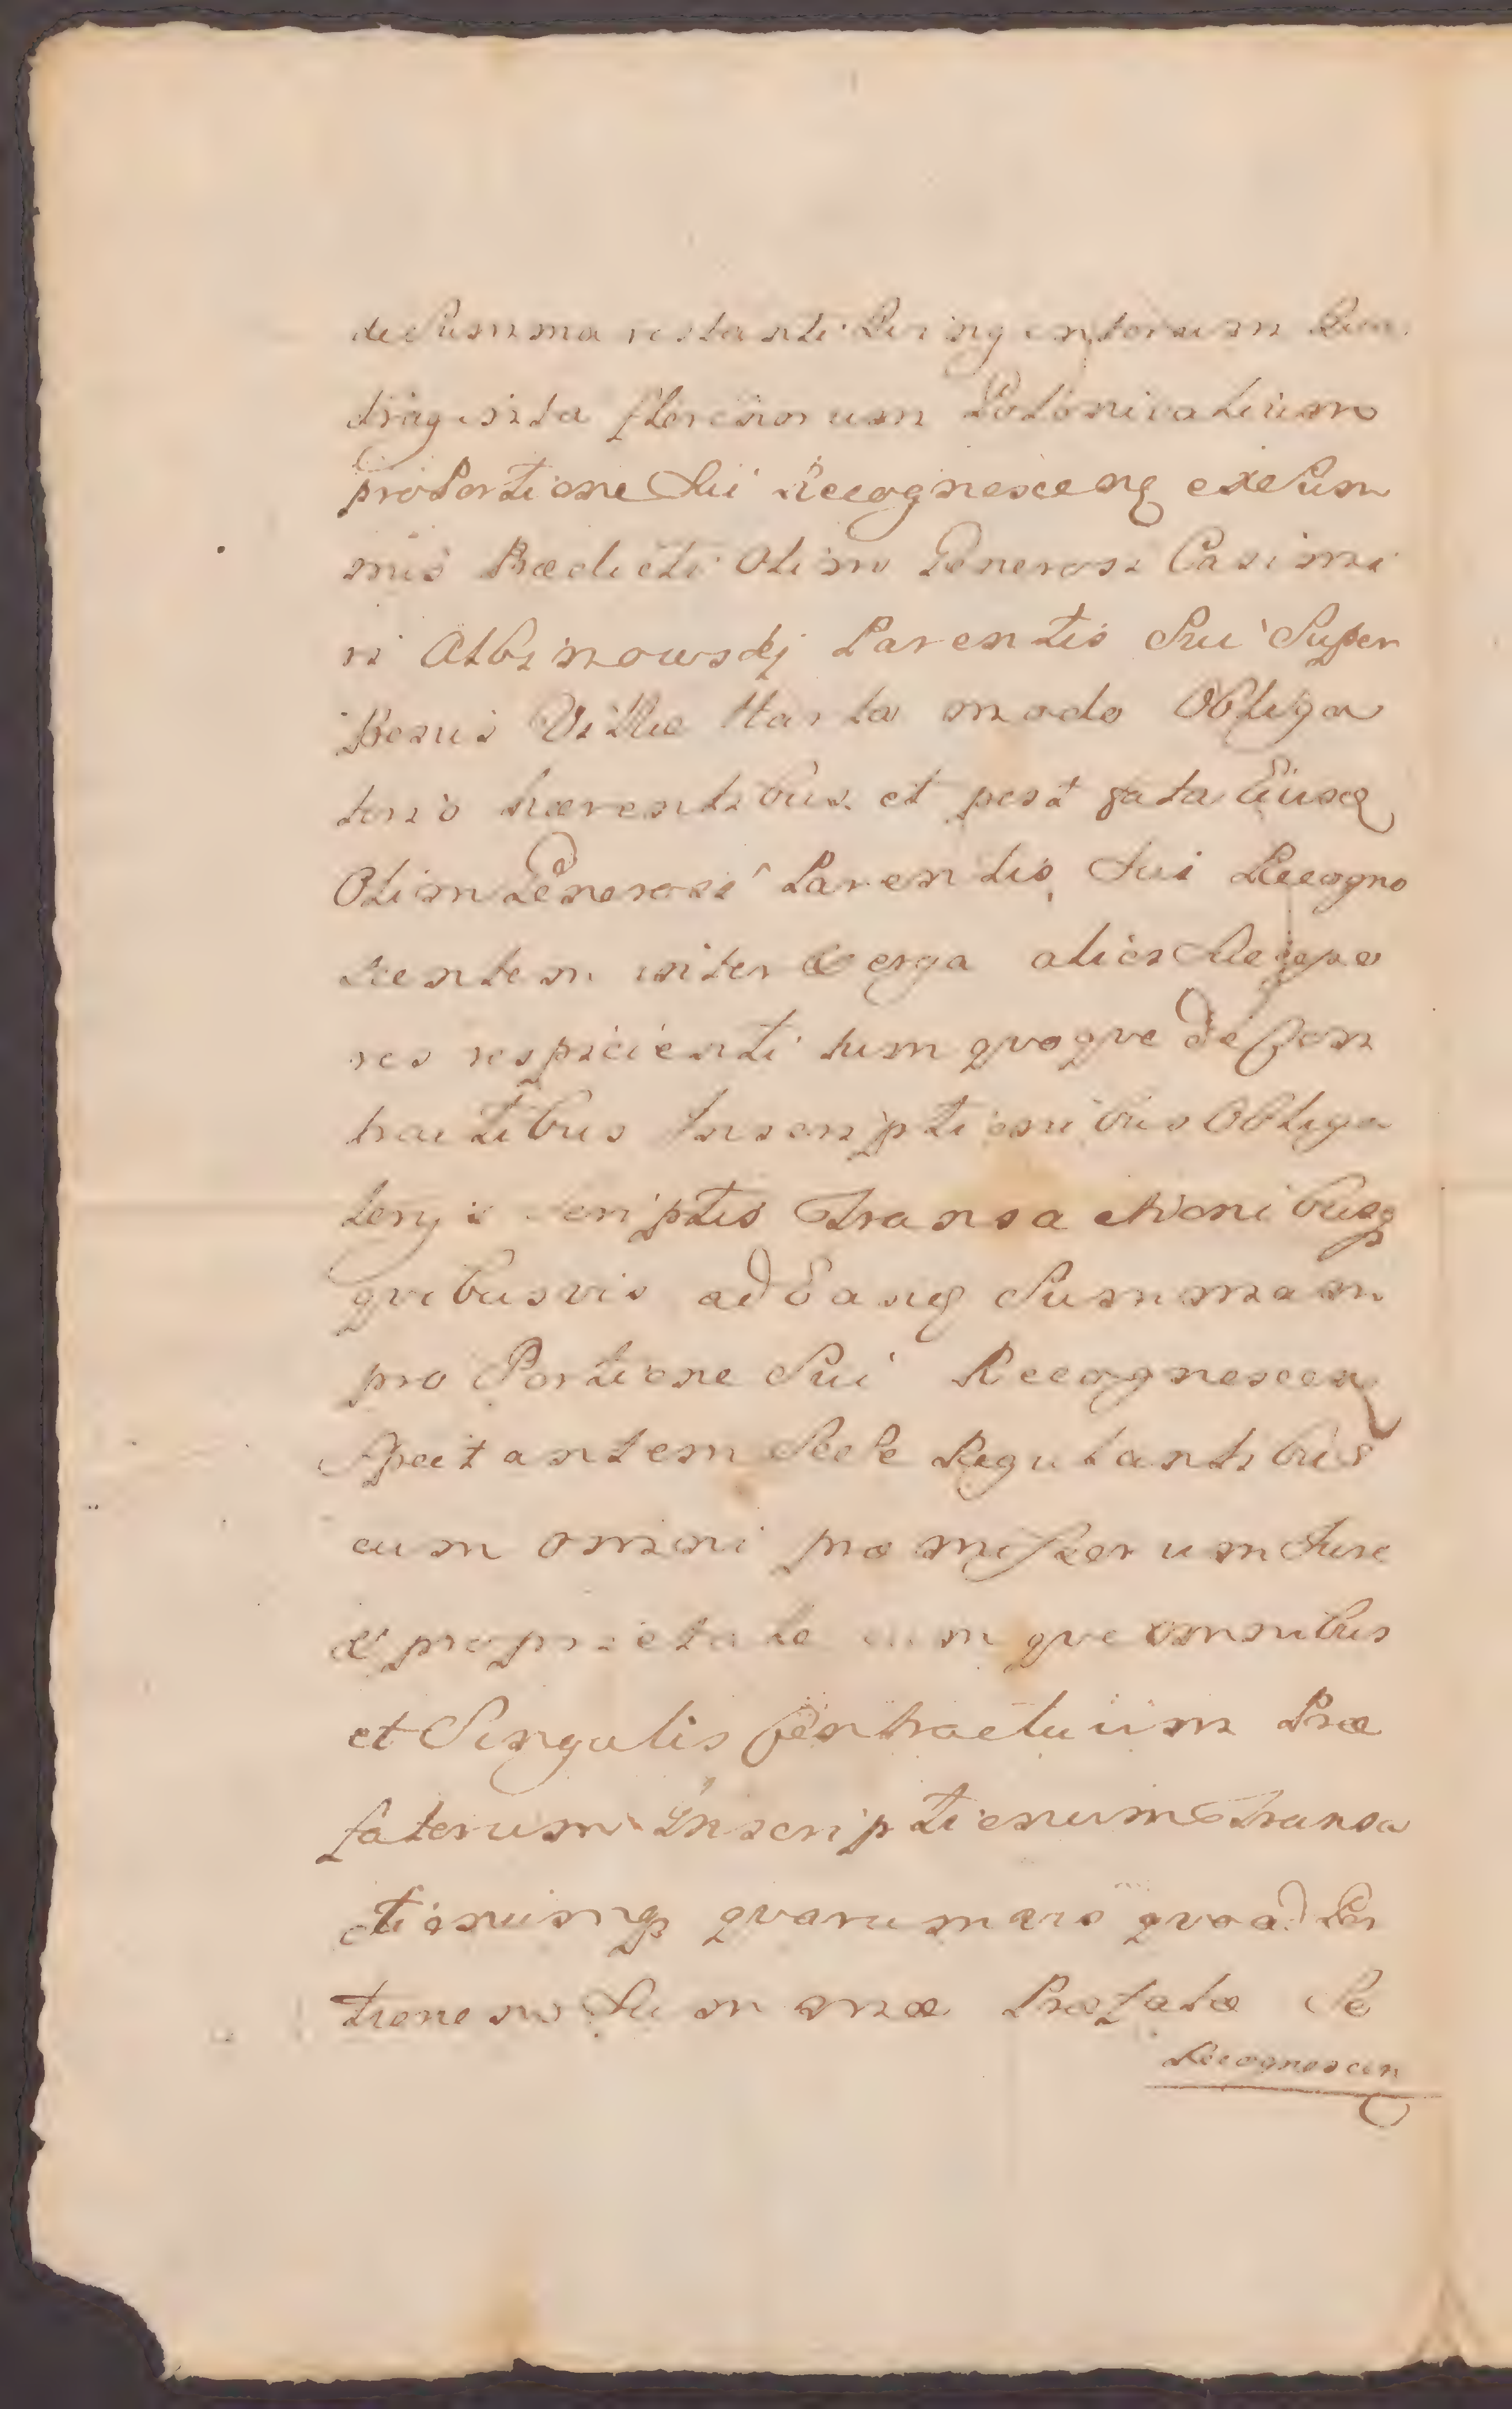 de Summa restanti Quingentorum Qua
draginta florenorum Polonicalium
pro Portione Sui Recognoscenq ex Sum
mis Prædicti Olim Generosi Casimi
ri Albinowskj Parentis Sui Super
Bonis Villæ Harta modo Obliga
torio hærentibus et post fata Eiusq
Olim Generosi Parentis Sui Recogno
scentem inter & erga alios
res respicienti tum qvoqve de Con
tractibus Inscriptionibus Obliga
torys Scriptis Transactionibusq
qvibusvis ad Eanq Summam
pro Portione Sui Recognoscenq
Spectantem Sese Regulantibus
cum omni præmissorum Jure
& proprietate cumqve omnibus
et Singulis Contractuum Præ
fatorum Inscriptionum Transa
ctionumq qvarumvis qvoad Por
tionem Summæ Præfatæ Se
Recognoscen